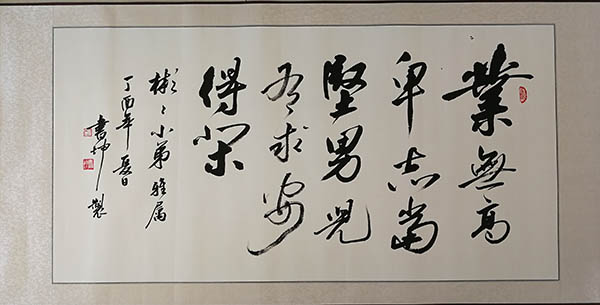 業無高
卑志當
堅男兒
有求安
得閑
彬彬小弟雅属
丁酉年夏日
書坤製